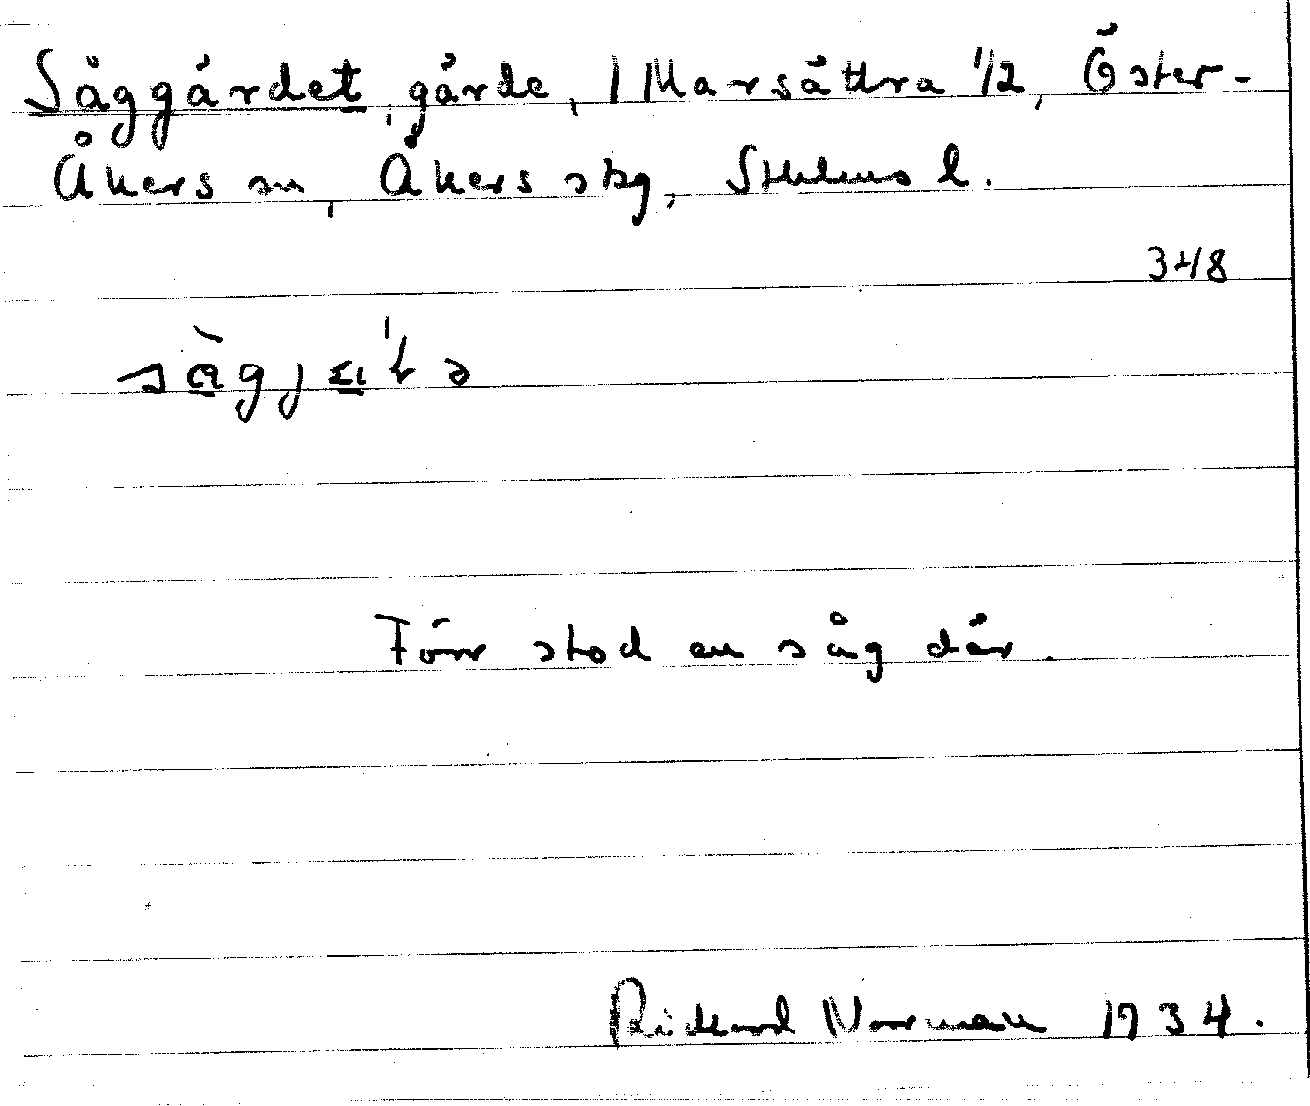 Såggärdet, gärde, 1 Marsättra 1/2, Öster-
Åkers sn, Åkers skg, Sthlms l.
348
Förr stod en såg där.
Rickard Norrman 1934.